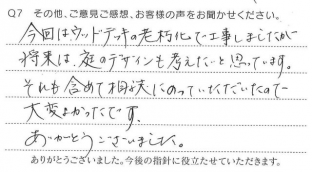 Q7 その他、ご意見ご感想、お客様の声をお聞かせください。
今回はウッドデッキの老朽化で工事しましたが
将来は、庭のデザインも考えたいと思っています。
それも含めて相談にのっていただいたので
大変よかったです。
ありがとうございました。
ありがとうございました。今後の指針に役立たせていただきます。